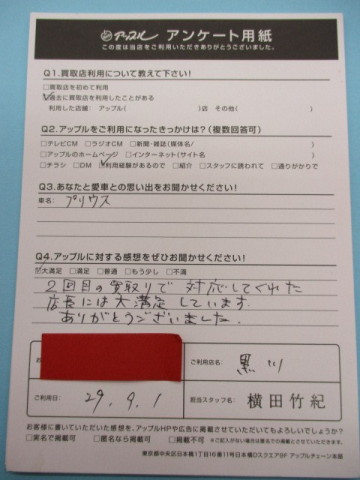 アップル アンケート用紙
この度は当店をご利用いただきありがとうございました。
Q1.買取店利用について教えて下さい!
□買取店を初めて利用
☑過去に買取店を利用したことがある
利用した店舗 アップル( )店 その他( )
Q2.アップルをご利用になったきっかけは?(複数回答可)
□テレビCM □ラジオCM □新聞・雑誌(媒体名/ )
□アップルのホームページ □インターネット(サイト名 )
□チラシ □DM ☑利用経験があるので □紹介 □スタッフに誘われて □通りがかりで
Q3.あなたと愛車との思い出をお聞かせください!
車名: プリウス
Q4.アップルに対する感想をぜひお聞かせください!
☑大満足 □満足 □普通 □もう少し □不満
2回目の買取りで対応してくれた
店長には大満足しています。
ありがとうございました。
お
ご利用店名: 黒川
ご利用日: 29.9.1
担当スタッフ名: 横田竹紀
お客様に書いていただいた感想を、アップルHPや広告に掲載させていただいてもよろしいでしょうか?
□実名で掲載可 □匿名なら掲載可 □掲載不可 ※ご記入がない場合は匿名での掲載とさせていただきます。
東京都中央区日本橋1丁目16番11号日本橋Dスクエア8F アップルチェーン本部